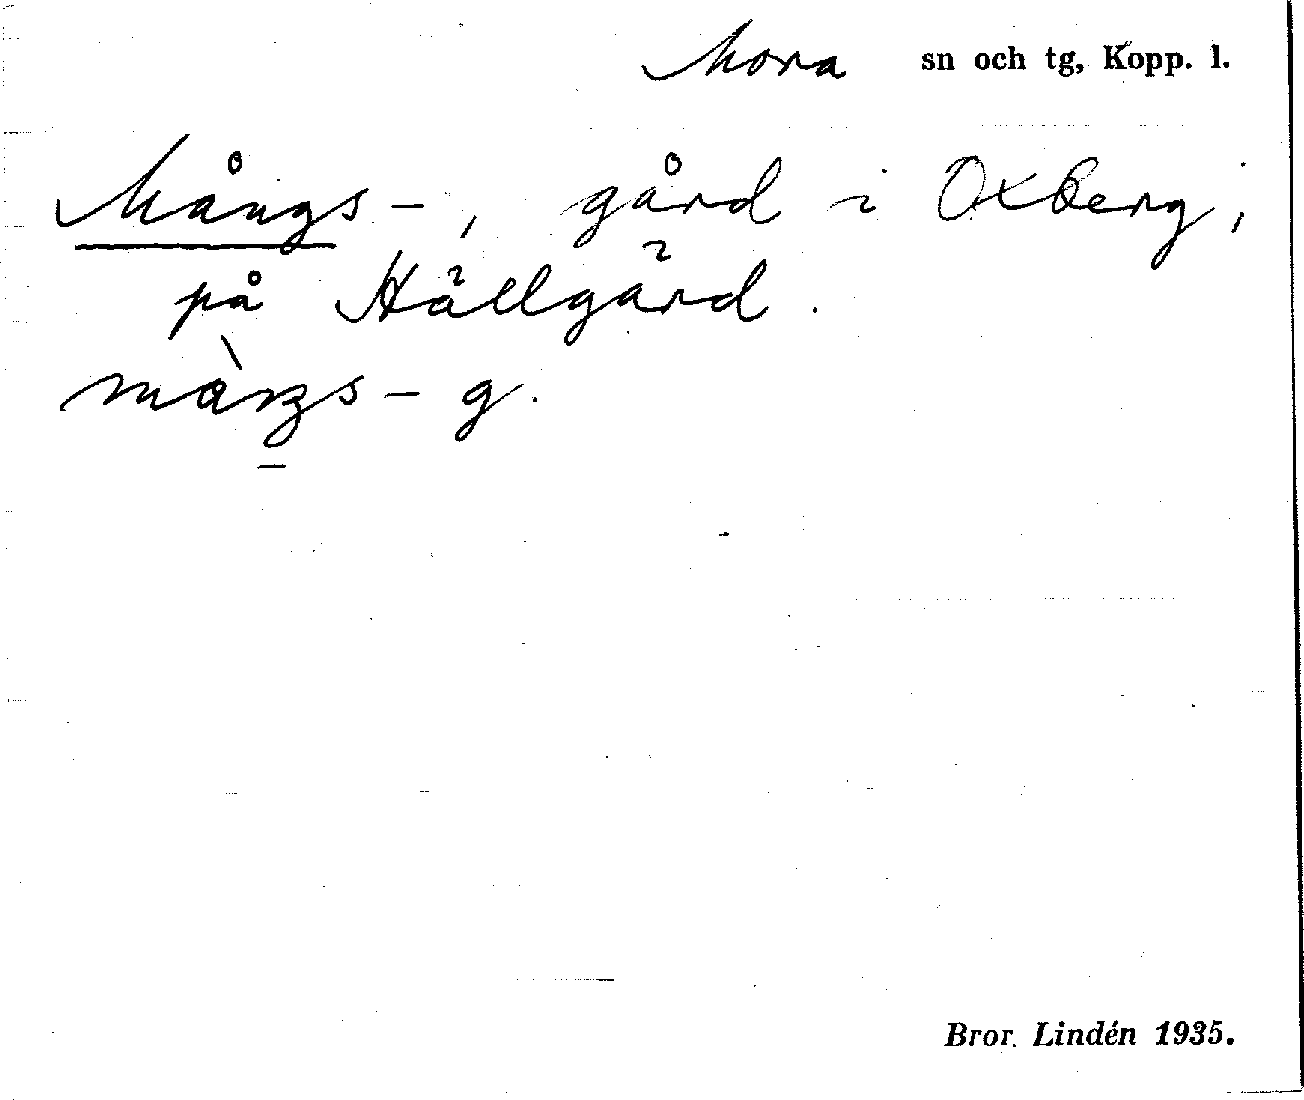 Mora sn och tg, Kopp. l.
Mångs-, gård i Oxberg,
på Hållgård.
màŋgs-g.
Bror Lindén 1935.